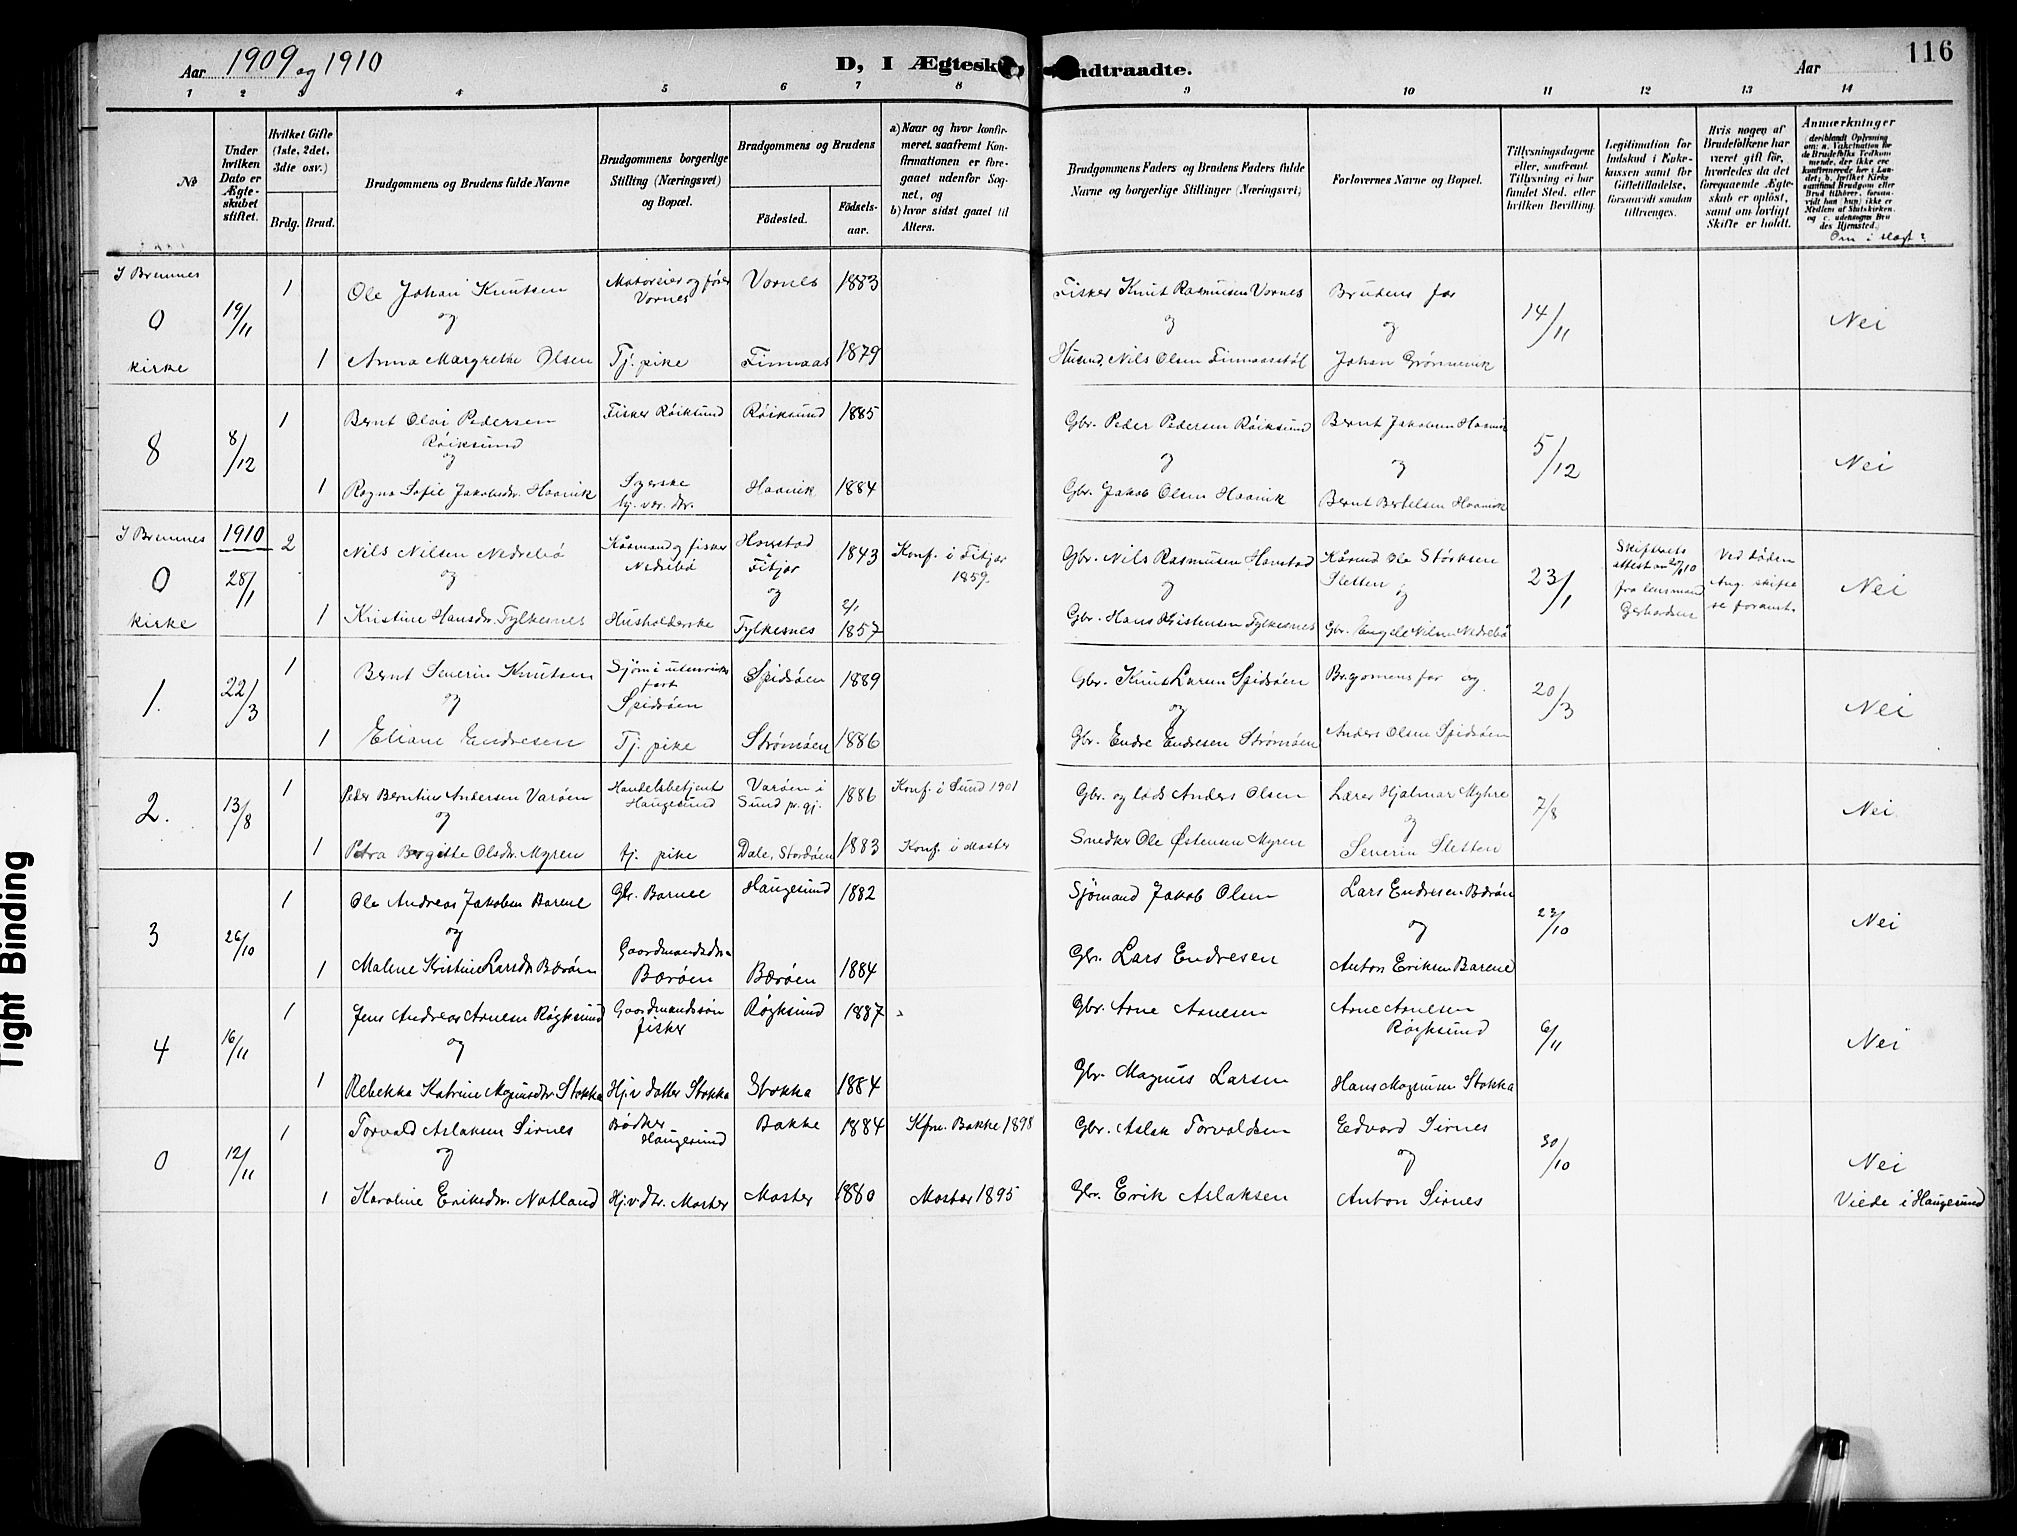 Aar 1909 og 1910
D, I Ægtesk
ndtraadte.
Aar
116
1 2 3 4 5 6 7 8 9 10 11 12 13 14
No
Under hvilken Dato er Ægteskabet stiftet.
Hvilket Gifte (1ste, 2det, 3die osv.)
Brdg. Brud.
Brudgommens og Brudens fulde Navne
Brudgommens borgerlige Stilling (Næringsvei) og Bopæl.
Brudgommens og Brudens
Fødested.
Fødselsaar.
a) Naar og hvor konfirmeret, saafremt Konfirmationen er foregaaet udenfor Sognet, og
b) hvor sidst gaael til Alters.
Brudgommens Faders og Brudens Faders fulde Navne og borgerlige Stillinger (Næringsvei)
Forlovernes Navne og Bopæl.
Tillysningsdagene eller, saafremt Tillysning ei har fundet Sted, efter hvilken Bevilling.
Legitimation for Indskud i Enkekassen samt for Giftetilladelse, forsaavidt saadan tiltrænges.
Hvis nogen af Brudefolkene har været gift før, hvorledes da det foregaaende Ægteskab er opløst, samt om lovligt Skifte er holdt.
Anmærkninger
(deriblandt Oplysning om: a. Vakcination for de Brudefolks Vedkommende, der ikke ere konfirmerede her i Landet; b. hvilket Kirkesamfund Brudgom eller Brud tilhører, forsaavidt han (hun) ikke er Medlem af Statskirken, og c. udensogns Brudes Hjemsted.)
Om i slægt?
I Bremnes 0 kirke
19/11
1
Ole Johan Knutsen
Motoreier og fører Vornes
Vornes
1883
Fisker Knut Rasmusen Vornes
Brudens far
14/11
Nei
og
og
og
1
Anna Margrethe Olsen
Tj. pike
Finnaas
1879
Husmd. Nils Olsen Finnaasstøl
Johan Grønnevik
8
8/12
1
Bernt Olai Pedersen Røiksund
Fisker Røiksund
Røiksund
1885
Gbr. Peder Pedersen Røiksund
Bernt Jakobsen Haavik
5/12
Nei
og
og
og
1
Ragna Sofie Jakobsdr. Haavik
Syerske hj. vær. dr.
Haavik
1884
Gbr. Jakob Olsen Haavik
Bernt Bertelsen Haavik
I Bremnes 0 kirke
1910
28/1
2
Nils Nilsen Nedrebø
Kårmand og fisker Nedrebø
Havstad i Fitjar
1843
Konf. i Fitjar 1859.
Gbr. Nils Rasmusen Havstad
Kårmd Ole Størksen Sletten
23/1
Skifterets attest
fra lensmand Gerhardsen
Ved døden
Ang. skifte se foranst.
Nei
og
og
og
og
1
Kristine Hansdr. Fylkesnes
Husholderske
Fylkesnes
2/1 1857
Gbr. Hans Kristensen Fylkesnes
Gbr. Engele Nilsen Nedrebø
1.
22/3
1
Bernt Severin Knutsen
Sjøm i utenriks fart Spidsøen
Spidsøen
1889
Gbr. Knut Larsen Spidsøen
Brgomens far og
20/3
Nei
og
og
1
Eliane Endresen
Tj. pike
Strømøen
1886
Gbr. Endre Endresen Strømøen
Anders Olsen Spidsøen
2.
13/8
1
Peder Berntin Andersen Varøen
Handelsbetjent Haugesund
Varøen i Sund pr.gj.
1886
Konf. i Sund 1901
Gbr. og lods Anders Olsen
Lærer Hjalmar Myhre
7/8
Nei
og
og
1
Petra Bergitte Olsdr. Myren
tj. pike
Dale, Stordøen
1883
Konf. i Moster
Snedker Ole Østensen Myren
Severin Sletten
3
26/10
1
Ole Andreas Jakobsen Barene
Gbr. Barnee
Haugesund
1882
Sjømand Jakob Olsen
Lars Endresen Bærøn
23/10
Nei
og
og
1
Malene Kristine Larsdr. Bærøen
Gaardmandsdr. Bærøen
Bærøen
1884
Gbr. Lars Endresen
Anton Eriksen Barene
4
16/11
1
Jens Andreas Arnesen Røyksund
Gaardmandssøn fisker
Røyksund
1887
Gbr. Arne Arnesen
Arne Arnesen Røyksund
6/11
Nei
og
1
Rebekka Katrine Magnusdtr. Stokka
Hj.v datter Stokka
Stokka
1884
Gbr. Magnus Larsen
Hans Magnusen Stokka
0
12/11
1
Torvald Aslaksen Sirnes
Bødker Haugesund
Bakke
1884
Kfm. Bakke 1898
Gbr. Aslak Torvaldsen
Edvard Sirnes
30/10
Nei
og
og
1
Karoline Eriksdr. Natland
Hj.v. dtr. Moster
Moster
1880
Moster 1895
Gbr. Erik Aslaksen
Anton Sirnes
Viede i Haugesund
Tight Binding